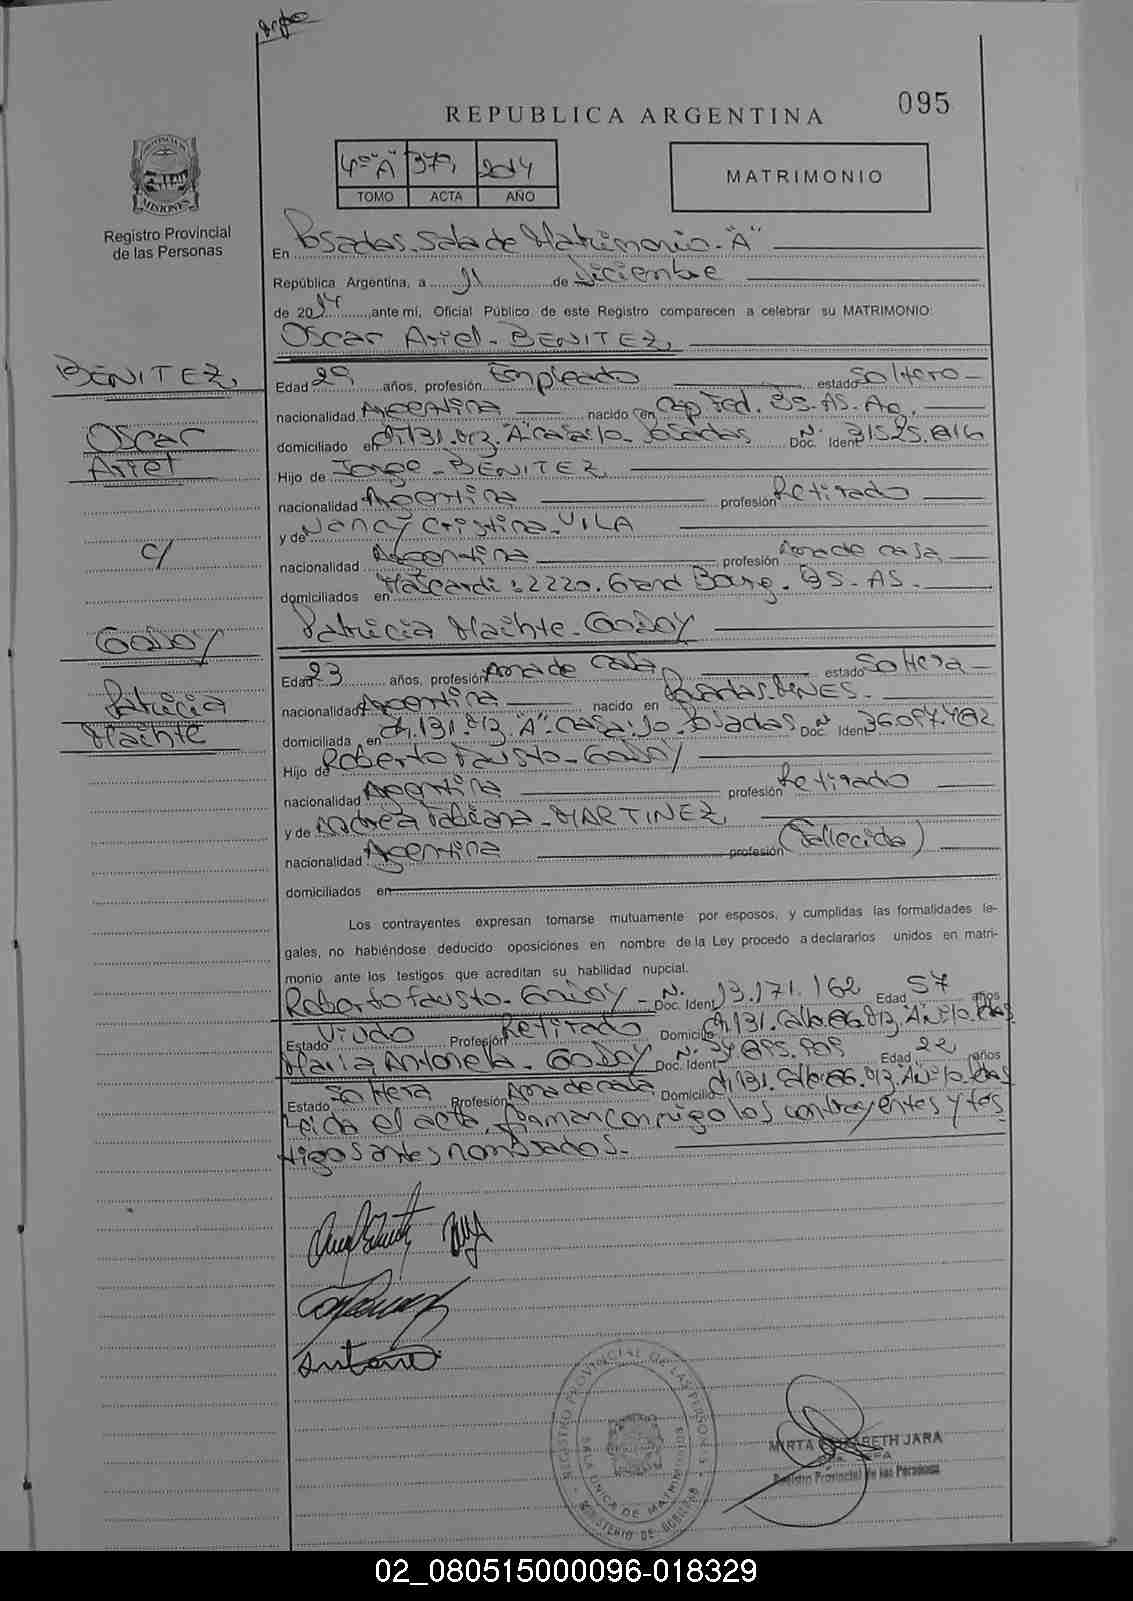 REPUBLICA ARGENTINA
095
4º "A" 379, 2014
TOMO ACTA AÑO
MATRIMONIO
MISIONES
Registro Provincial
de las Personas
En Posadas. Sala de Matrimonio. "A"
República Argentina, a 11 de Diciembre
de 2014 ante mí, Oficial Público de este Registro comparecen a celebrar su MATRIMONIO:
Oscar Ariel - BENITEZ,
BENITEZ,
Oscar
Ariel
c/
GODOY
Patricia
Maihte
Edad 29 años, profesión Empleado estado Soltero
nacionalidad Argentina nacido en Cap. Fed. BS. AS. Ag,
domiciliado en Ch. 131. "A" casa: 10. Posadas Nº Doc. Ident 31525.816
Hijo de Jorge - BENITEZ,
nacionalidad Argentina profesión Retirado
y de Nancy Cristina - VILA
nacionalidad Argentina profesión Ama de casa,
domiciliados en Mascardi: 2220. Grand Bourg. BS. AS.
Patricia Maihte - GODOY
Edad 23 años, profesión Ama de casa estado Soltera
nacionalidad Argentina nacido en Posadas. MNES.
domiciliada en Ch. 131. "A" casa: 10. Posadas Nº Doc. Ident
Hijo de Roberto Fausto - GODOY
nacionalidad Argentina profesión Retirado
y de Andrea Fabiana - MARTINEZ,
nacionalidad Argentina profesión (Fallecida)
domiciliados en
Los contrayentes expresan tomarse mutuamente por esposos, y cumplidas las formalidades le-
gales, no habiéndose deducido oposiciones en nombre de la Ley procedo a declararlos unidos en matri-
monio ante los testigos que acreditan su habilidad nupcial.
Roberto Fausto - GODOY - Nº Doc. Ident 13.171.162 Edad 57 años
Estado Viudo Profesión Retirado Domicilio Ch. 131.
Maria Antonela - GODOY Nº Doc. Ident Edad 22 años
Estado Soltera Profesión Ama de casa Domicilio Ch. 131.
Leida el acta, firman conmigo los contrayentes y tes
tigos antes nombrados.
REGISTRO PROVINCIAL DE LAS PERSONAS
SALA UNICA DE MATRIMONIOS
MINISTERIO DE GOBIERNO
MIRTA ELIZABETH JARA
Registro Provincial de las Personas
02_080515000096-018329